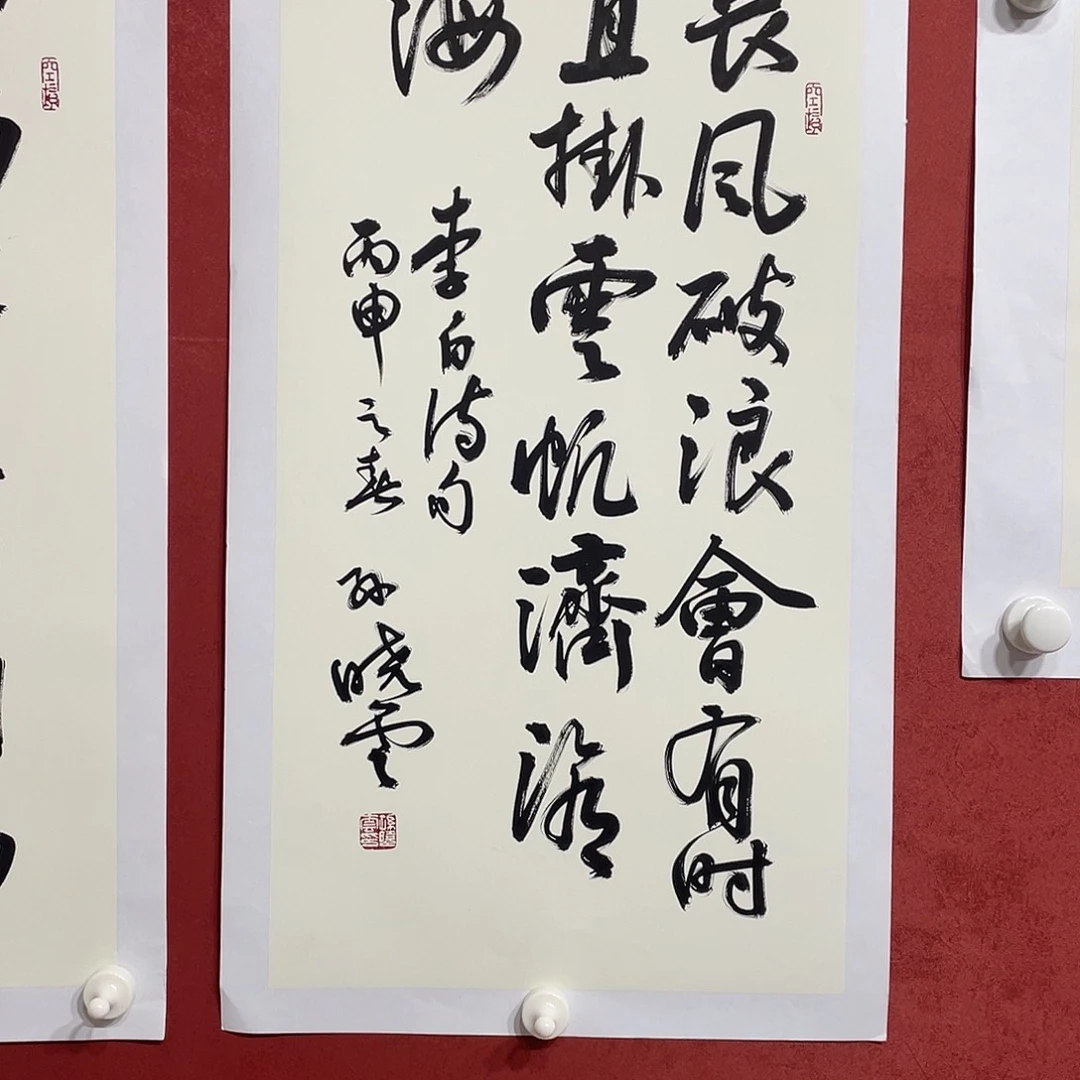 長风破浪會有时
直掛雲帆濟滄
海
李白诗句
丙申之春 孙晓雲